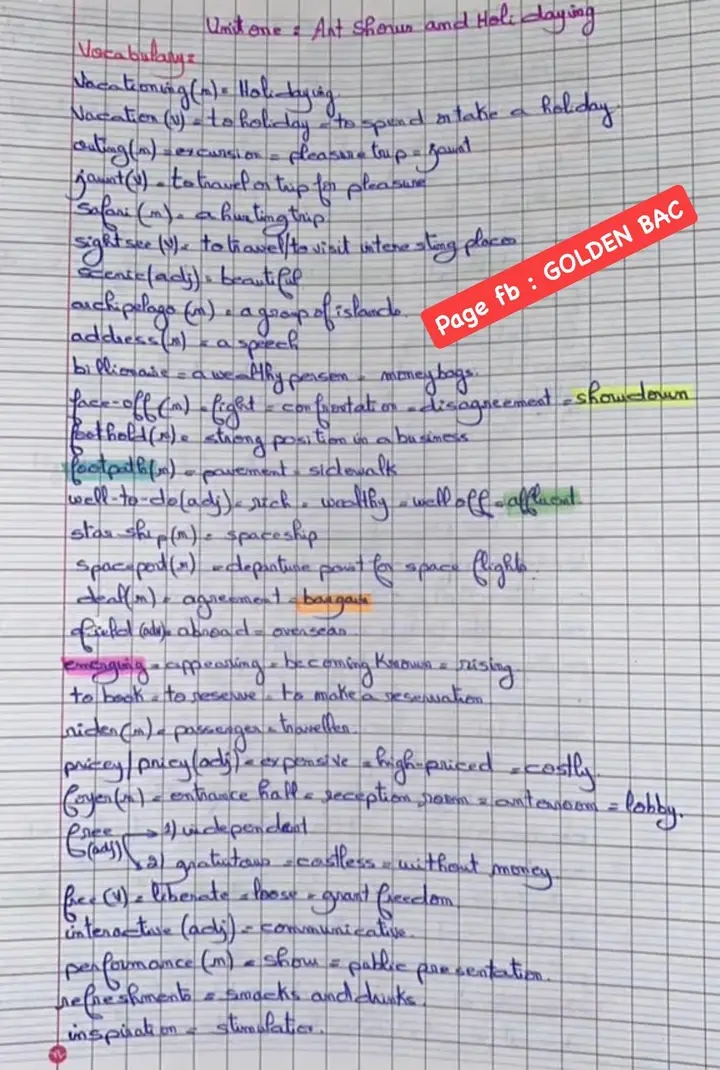 Unit one : Art Shows and Holidaying
Vocabulary:
Vacationing (n) = Holidaying.
Vacation (v) = to holiday = to spend or take a holiday.
outing (n) = excursion = pleasure trip = jaunt
jaunt (v) = to travel or trip for pleasure
safari (n) = a hunting trip
sightsee (v) = to travel/to visit interesting places
scenic (adj) = beautiful
archipelago (n) = a group of islands.
address (n) = a speech
billionaire = a wealthy person = moneybags.
face-off (n) = fight = confrontation = disagreement = showdown
foothold (n) = strong position in a business
footpath (n) = pavement = sidewalk
well-to-do (adj) = rich = wealthy = well off = affluent.
star ship (n) = spaceship
spaceport (n) = departure point for space flights.
deal (n) = agreement = bargain
afield (adv) = abroad = overseas.
emerging = appearing = becoming known = rising.
to book = to reserve = to make a reservation
rider (n) = passenger = traveller.
pricey/pricy (adj) = expensive = high-priced = costly.
foyer (n) = entrance hall = reception room = anteroom = lobby.
free (adj) → 1) independent
2) gratuitous = costless = without money.
free (v) = liberate = loose = grant freedom
interactive (adj) = communicative.
performance (n) = show = public presentation.
refreshments = snacks and drinks.
inspiration = stimulation.
Page fb : GOLDEN BAC